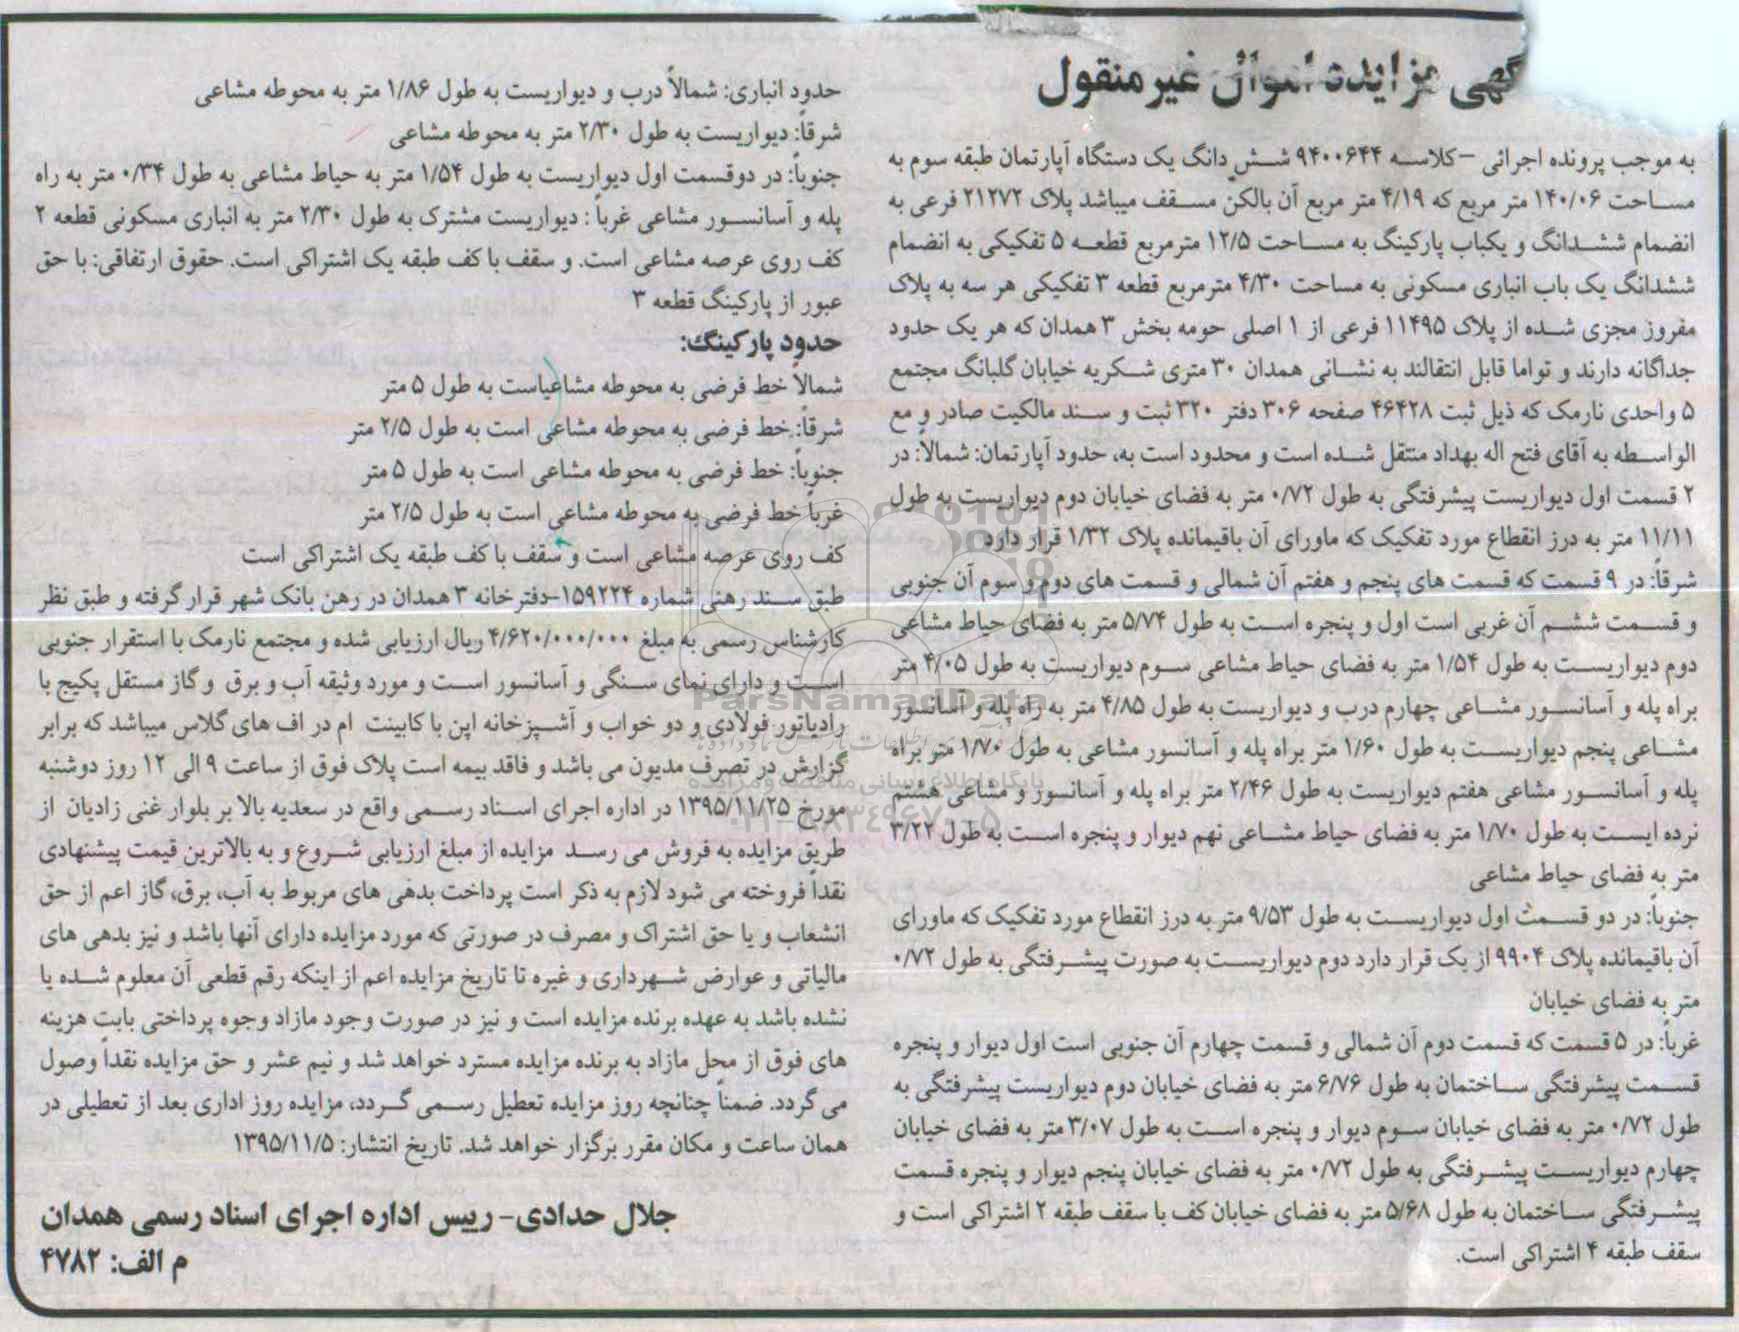 گهی مزایده اموال غیرمنقول
به موجب پرونده اجرائی –کلاسه ۹۴۰۰۶۴۴ شش دانگ یک دستگاه آپارتمان طبقه سوم به
مساحت ۱۴۰/۰۶ متر مربع که ۴/۱۹ متر مربع آن بالکن مسقف میباشد پلاک ۲۱۲۷۲ فرعی به
انضمام ششدانگ و یکباب پارکینگ به مساحت ۱۲/۵ مترمربع قطعه ۵ تفکیکی به انضمام
ششدانگ یک باب انباری مسکونی به مساحت ۴/۳۰ مترمربع قطعه ۳ تفکیکی هر سه به پلاک
مفروز مجزی شده از پلاک ۱۱۴۹۵ فرعی از ۱ اصلی حومه بخش ۳ همدان که هر یک حدود
جداگانه دارند و تواما قابل انتقالند به نشانی همدان ۳۰ متری شکریه خیابان گلبانگ مجتمع
۵ واحدی نارمک که ذیل ثبت ۴۶۴۲۸ صفحه ۳۰۶ دفتر ۳۲۰ ثبت و سند مالکیت صادر و مع
الواسطه به آقای فتح اله بهداد منتقل شده است و محدود است به، حدود آپارتمان: شمالاً: در
۲ قسمت اول دیواریست پیشرفتگی به طول ۰/۷۲ متر به فضای خیابان دوم دیواریست به طول
۱۱/۱۱ متر به درز انقطاع مورد تفکیک که ماورای آن باقیمانده پلاک ۱/۳۲ قرار دارد
شرقاً: در ۹ قسمت که قسمت های پنجم و هفتم آن شمالی و قسمت های دوم و سوم آن جنوبی
و قسمت ششم آن غربی است اول و پنجره است به طول ۵/۷۴ متر به فضای حیاط مشاعی
دوم دیواریست به طول ۱/۵۴ متر به فضای حیاط مشاعی سوم دیواریست به طول ۴/۰۵ متر
براه پله و آسانسور مشاعی چهارم درب و دیواریست به طول ۴/۸۵ متر به راه پله و آسانسور
مشاعی پنجم دیواریست به طول ۱/۶۰ متر براه پله و آسانسور مشاعی به طول ۱/۷۰ متر براه
پله و آسانسور مشاعی هفتم دیواریست به طول ۲/۴۶ متر براه پله و آسانسور و مشاعی هشتم
نرده ایست به طول ۱/۷۰ متر به فضای حیاط مشاعی نهم دیوار و پنجره است به طول ۳/۲۲
متر به فضای حیاط مشاعی
جنوباً: در دو قسمت اول دیواریست به طول ۹/۵۳ متر به درز انقطاع مورد تفکیک که ماورای
آن باقیمانده پلاک ۹۹۰۴ از یک قرار دارد دوم دیواریست به صورت پیشرفتگی به طول ۰/۷۲
متر به فضای خیابان
غرباً: در ۵ قسمت که قسمت دوم آن شمالی و قسمت چهارم آن جنوبی است اول دیوار و پنجره
قسمت پیشرفتگی ساختمان به طول ۶/۷۶ متر به فضای خیابان دوم دیواریست پیشرفتگی به
طول ۰/۷۲ متر به فضای خیابان سوم دیوار و پنجره است به طول ۳/۰۷ متر به فضای خیابان
چهارم دیواریست پیشرفتگی به طول ۰/۷۲ متر به فضای خیابان پنجم دیوار و پنجره قسمت
پیشرفتگی ساختمان به طول ۵/۶۸ متر به فضای خیابان کف با سقف طبقه ۲ اشتراکی است و
سقف طبقه ۴ اشتراکی است.
حدود انباری: شمالاً درب و دیواریست به طول ۱/۸۶ متر به محوطه مشاعی
شرقاً: دیواریست به طول ۲/۳۰ متر به محوطه مشاعی
جنوباً: در دوقسمت اول دیواریست به طول ۱/۵۴ متر به حیاط مشاعی به طول ۰/۳۴ متر به راه
پله و آسانسور مشاعی غرباً : دیواریست مشترک به طول ۲/۳۰ متر به انباری مسکونی قطعه ۲
کف روی عرصه مشاعی است. و سقف با کف طبقه یک اشتراکی است. حقوق ارتفاقی: با حق
عبور از پارکینگ قطعه ۳
حدود پارکینگ:
شمالاً خط فرضی به محوطه مشاعیاست به طول ۵ متر
شرقاً: خط فرضی به محوطه مشاعی است به طول ۲/۵ متر
جنوباً: خط فرضی به محوطه مشاعی است به طول ۵ متر
غرباً خط فرضی به محوطه مشاعی است به طول ۲/۵ متر
کف روی عرصه مشاعی است و سقف با کف طبقه یک اشتراکی است
طبق سند رهنی شماره ۱۵۹۲۲۴-دفترخانه ۳ همدان در رهن بانک شهر قرار گرفته و طبق نظر
کارشناس رسمی به مبلغ ۴/۶۲۰/۰۰۰/۰۰۰ ریال ارزیابی شده و مجتمع نارمک با استقرار جنوبی
است و دارای نمای سنگی و آسانسور است و مورد وثیقه آب و برق و گاز مستقل پکیج با
رادیاتور فولادی و دو خواب و آشپزخانه اپن با کابینت ام در اف های گلاس میباشد که برابر
گزارش در تصرف مدیون می باشد و فاقد بیمه است پلاک فوق از ساعت ۹ الی ۱۲ روز دوشنبه
مورخ ۱۳۹۵/۱۱/۲۵ در اداره اجرای اسناد رسمی واقع در سعدیه بالا بر بلوار غنی زادیان از
طریق مزایده به فروش می رسد مزایده از مبلغ ارزیابی شروع و به بالاترین قیمت پیشنهادی
نقداً فروخته می شود لازم به ذکر است پرداخت بدهی های مربوط به آب، برق، گاز اعم از حق
انشعاب و یا حق اشتراک و مصرف در صورتی که مورد مزایده دارای آنها باشد و نیز بدهی های
مالیاتی و عوارض شهرداری و غیره تا تاریخ مزایده اعم از اینکه رقم قطعی آن معلوم شده یا
نشده باشد به عهده برنده مزایده است و نیز در صورت وجود مازاد وجوه پرداختی بابت هزینه
های فوق از محل مازاد به برنده مزایده مسترد خواهد شد و نیم عشر و حق مزایده نقداً وصول
می گردد. ضمناً چنانچه روز مزایده تعطیل رسمی گردد، مزایده روز اداری بعد از تعطیلی در
همان ساعت و مکان مقرر برگزار خواهد شد. تاریخ انتشار: ۱۳۹۵/۱۱/۵
جلال حدادی- رییس اداره اجرای اسناد رسمی همدان
م الف: ۴۷۸۲
ParsNamadData
پایگاه اطلاع رسانی مناقصه و مزایده